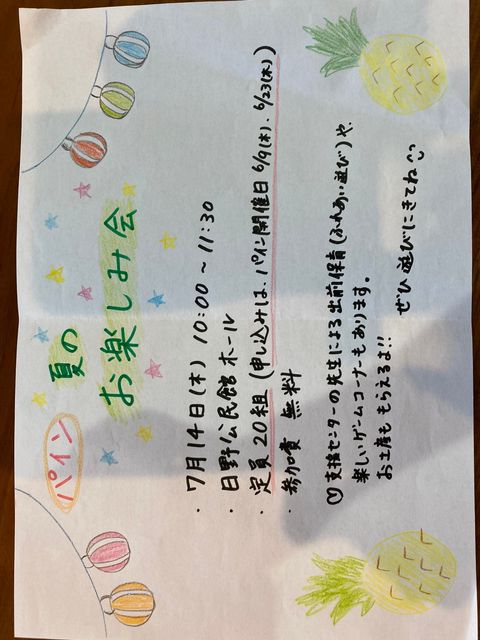 パイン
夏の
お楽しみ会
・7月14日(木) 10:00〜11:30
・日野公民館 ホール
・定員20組(申し込みは、パイン開催日 6/9(木)、6/23(木))
・参加費 無料
支援センターの先生による出前保育(ふれあい遊び)や、
楽しいゲームコーナーもあります。
お土産ももらえるよ!!
ぜひ遊びにきてね